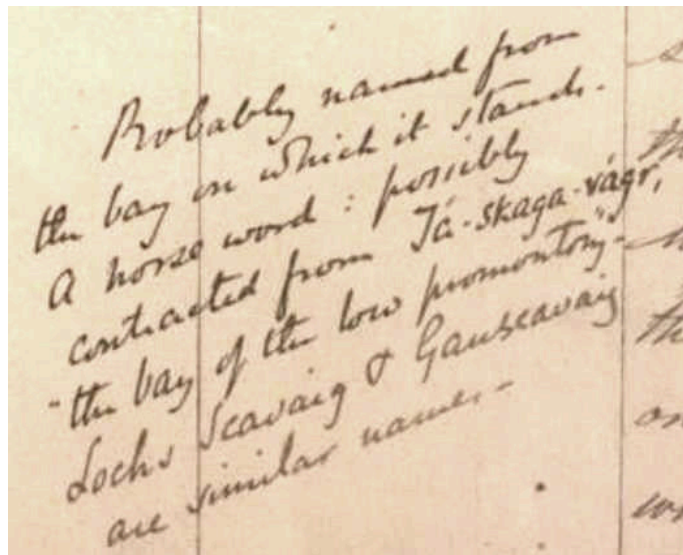 Probably named from
the bay on which it stands.
A norse word : possibly
contracted from Tá-skaga-vágr,
"the bay of the low promontory"-
Lochs Scavaig & Gauscavaig
are similar names -